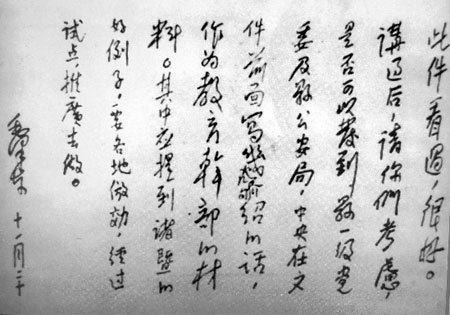 此件看過,很好。
講過后,請你們考慮,
是否可以發到縣一级党
委及縣公安局,中央在文
件前面寫幾句介紹的話,
作为教育幹部的材
料。其中应提到諸暨的
好例子,要各地仿効,經过
試点,推廣去做。
毛泽东 十一月二十